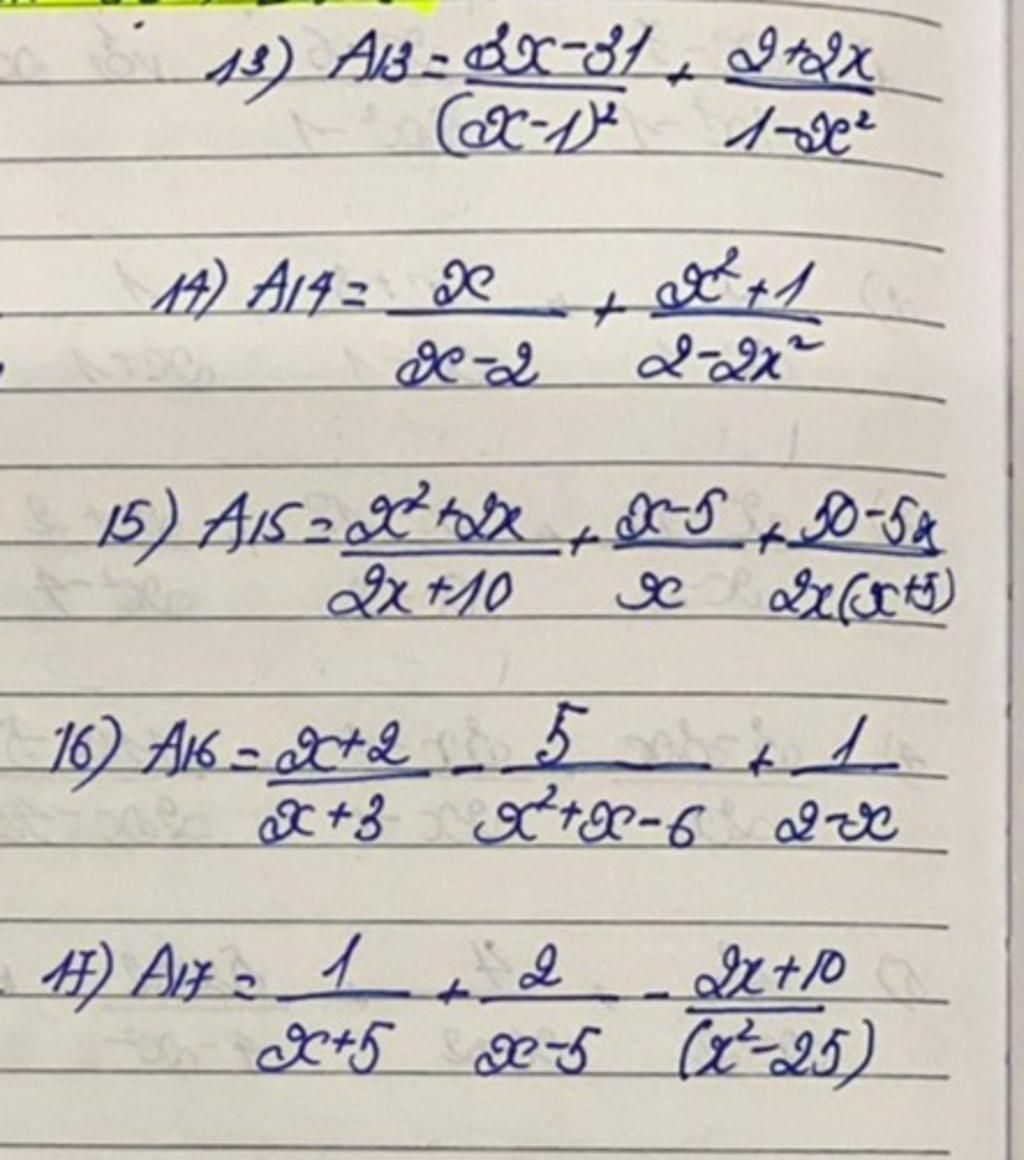 13) A13 = (3x-31)/((x-1)²) + (2+2x)/(1-x²)
14) A14 = x/(x-2) + (x²+1)/(2-2x²)
15) A15 = (x²+2x)/(2x+10) + (x-5)/x + (50-5x)/(2x(x+5))
16) A16 = (x+2)/(x+3) - 5/(x²+x-6) + 1/(2-x)
17) A17 = 1/(x+5) + 2/(x-5) - (2x+10)/((x²-25))